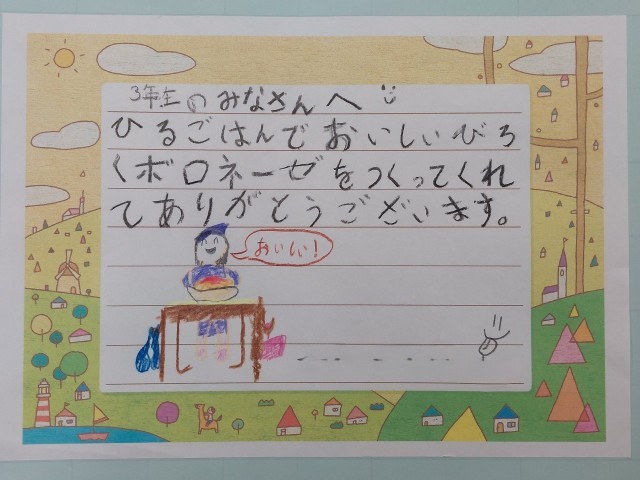 3年生のみなさんへ
ひるごはんでおいしいびろ
くボロネーゼをつくってくれ
てありがとうございます。
おいしい!